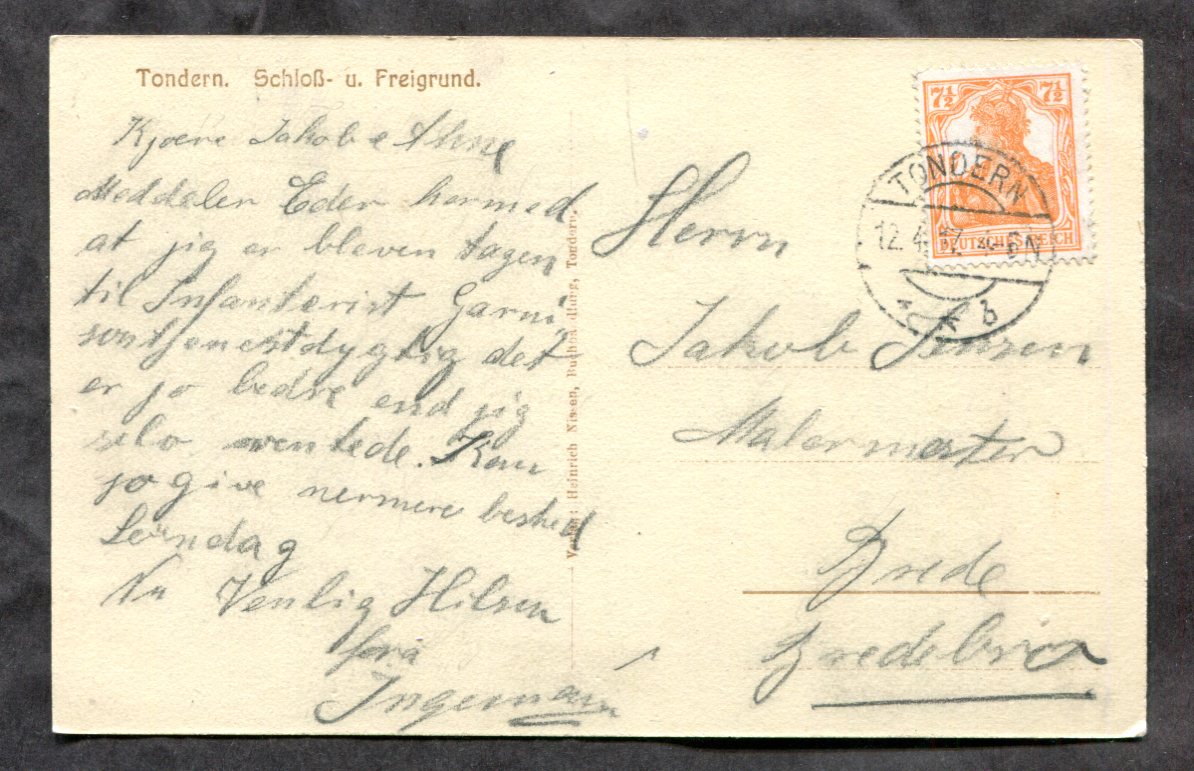 Tondern. Schloß- u. Freigrund.
Kjœre Jakob e Ahne
Meddeler Eder hermed
at jig er bleven tagen
til Infanterist Garni
sontjenestdygtig det
er jo bedre end jig
selv ventede. Kan
jo give nermere besked
Løndag
Nu Venlig Hilsen
fra
Ingemann
Verlag: Heinrich Nissen, Buchhandlung, Tondern.
7½ 7½
DEUTSCHES REICH
TONDERN
12.4.17. 4-5N
* b
Herrn
Jakob Jensen
Malermester
Brede
Bredebro